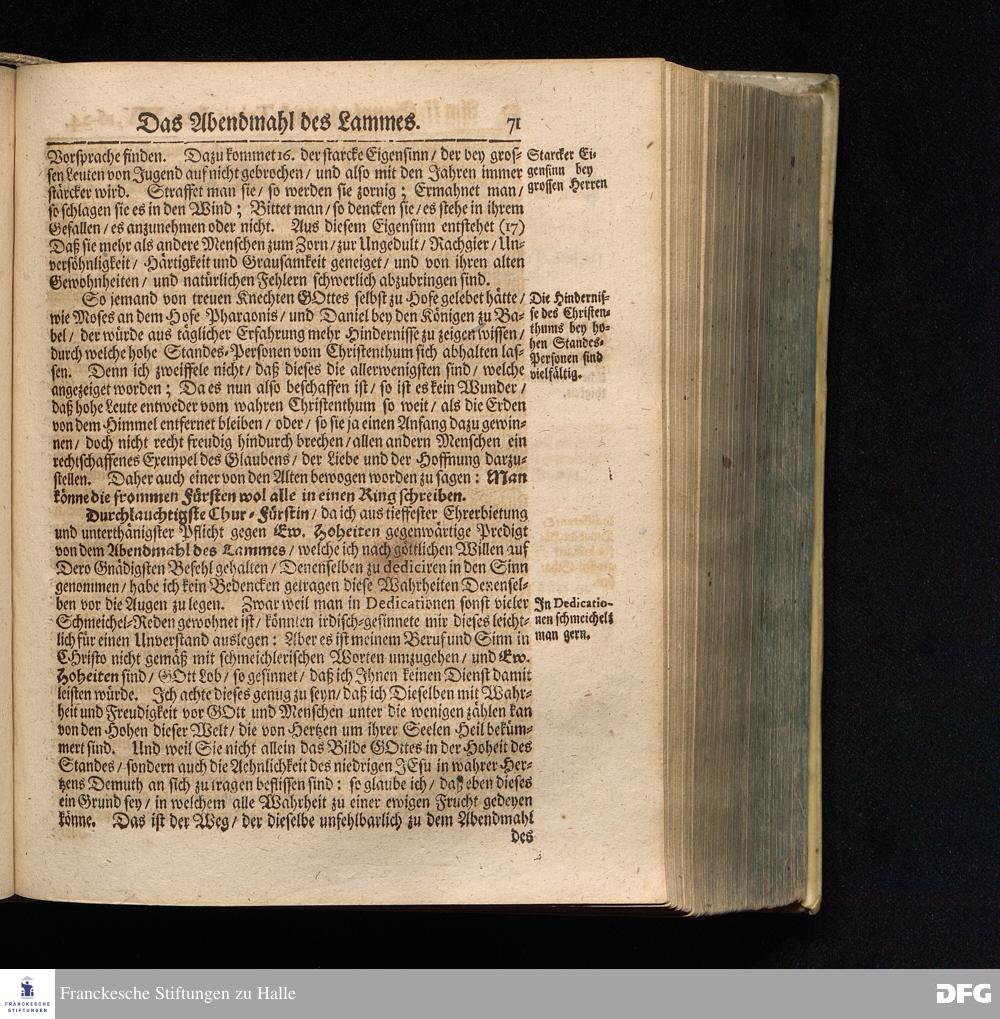 Das Abendmahl des Lammes. 71
Vorsprache finden. Dazu kommet 16. der starcke Eigensinn / der bey gros-
sen Leuten von Jugend auf nicht gebrochen / und also mit den Jahren immer
stärcker wird. Straffet man sie / so werden sie zornig ; Ermahnet man /
so schlagen sie es in den Wind ; Bittet man / so dencken sie / es stehe in ihrem
Gefallen / es anzunehmen oder nicht. Aus diesem Eigensinn entstehet (17)
Daß sie mehr als andere Menschen zum Zorn / zur Ungedult / Rachgier / Un-
versöhnligkeit / Härtigkeit und Grausamkeit geneiget / und von ihren alten
Gewohnheiten / und natürlichen Fehlern schwerlich abzubringen sind.
Starcker Ei-
gensinn bey
grossen Herren
So jemand von treuen Knechten GOttes selbst zu Hofe gelebet hätte /
wie Moses an dem Hofe Pharaonis / und Daniel bey den Königen zu Ba-
bel / der würde aus täglicher Erfahrung mehr Hindernisse zu zeigen wissen /
durch welche hohe Standes-Personen vom Christenthum sich abhalten las-
sen. Denn ich zweiffele nicht / daß dieses die allerwenigsten sind / welche
angezeiget worden ; Da es nun also beschaffen ist / so ist es kein Wunder /
daß hohe Leute entweder vom wahren Christenthum so weit / als die Erden
von dem Himmel entfernet bleiben / oder / so sie ja einen Anfang dazu gewin-
nen / doch nicht recht freudig hindurch brechen / allen andern Menschen ein
rechtschaffenes Exempel des Glaubens / der Liebe und der Hoffnung darzu-
stellen. Daher auch einer von den Alten bewogen worden zu sagen : Man
könne die frommen Fürsten wol alle in einen Ring schreiben.
Die Hindernis-
se des Christen-
thums bey ho-
hen Standes-
Personen sind
vielfältig.
Durchlauchtigste Chur-Fürstin / da ich aus tieffester Ehrerbietung
und unterthänigster Pflicht gegen Ew. Hoheiten gegenwärtige Predigt
von dem Abendmahl des Lammes / welche ich nach göttlichen Willen auf
Dero Gnädigsten Befehl gehalten / Denenselben zu dediciren in den Sinn
genommen / habe ich kein Bedencken getragen diese Wahrheiten Denensel-
ben vor die Augen zu legen. Zwar weil man in Dedicationen sonst vieler
Schmeichel-Reden gewohnet ist / könnten irdisch-gesinnete mir dieses leicht-
lich für einen Unverstand auslegen : Aber es ist meinem Beruf und Sinn in
CHristo nicht gemäß mit schmeichlerischen Worten umzugehen / und Ew.
Hoheiten sind / GOtt Lob / so gesinnet / daß ich Ihnen keinen Dienst damit
leisten würde. Ich achte dieses genug zu seyn / daß ich Dieselben mit Wahr-
heit und Freudigkeit vor GOtt und Menschen unter die wenigen zählen kan
von den Hohen dieser Welt / die von Hertzen um ihrer Seelen Heil beküm-
mert sind. Und weil Sie nicht allein das Bilde GOttes in der Hoheit des
Standes / sondern auch die Aehnlichkeit des niedrigen JEsu in wahrer Her-
tzens Demuth an sich zu tragen beflissen sind : so glaube ich / daß eben dieses
ein Grund sey / in welchem alle Wahrheit zu einer ewigen Frucht gedeyen
könne. Das ist der Weg / der dieselbe unfehlbarlich zu dem Abendmahl
des
In Dedicatio-
nen schmeichelt
man gern.
FRANCKESCHE
STIFTUNGEN
Franckesche Stiftungen zu Halle
DFG